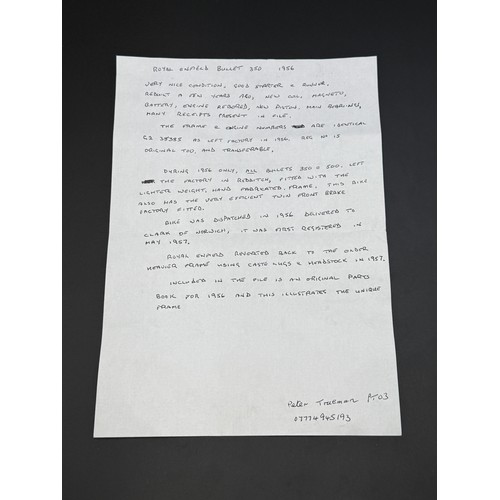 ROYAL ENFIELD BULLET 350 1956
VERY NICE CONDITION, GOOD STARTER & RUNNER,
REBUILT A FEW YEARS AGO, NEW COIL, MAGNETO,
BATTERY, ENGINE REBORED, NEW PISTON, MAIN BEARINGS,
MANY RECEIPTS PRESENT IN FILE.
THE FRAME & ENGINE NUMBERS ARE IDENTICAL
AS LEFT FACTORY IN 1956. REG Nº IS
ORIGINAL TOO, AND TRANSFERABLE.
DURING 1956 ONLY, ALL BULLETS 350 & 500, LEFT
THE FACTORY IN REDDITCH, FITTED WITH THE
LIGHTER WEIGHT, HAND FABRICATED, FRAME. THIS BIKE
ALSO HAS THE VERY EFFICIENT TWIN FRONT BRAKE
FACTORY FITTED.
BIKE WAS DISPATCHED IN 1956 DELIVERED TO
CLARK OF NORWICH, IT WAS FIRST REGISTERED IN
MAY 1957.
ROYAL ENFIELD REVERTED BACK TO THE OLDER
HEAVIER FRAME USING CAST LUGS & HEADSTOCK IN 1957.
INCLUDED IN THE FILE IS AN ORIGINAL PARTS
BOOK FOR 1956 AND THIS ILLUSTRATES THE UNIQUE
FRAME
Peter Trueman
07774945193